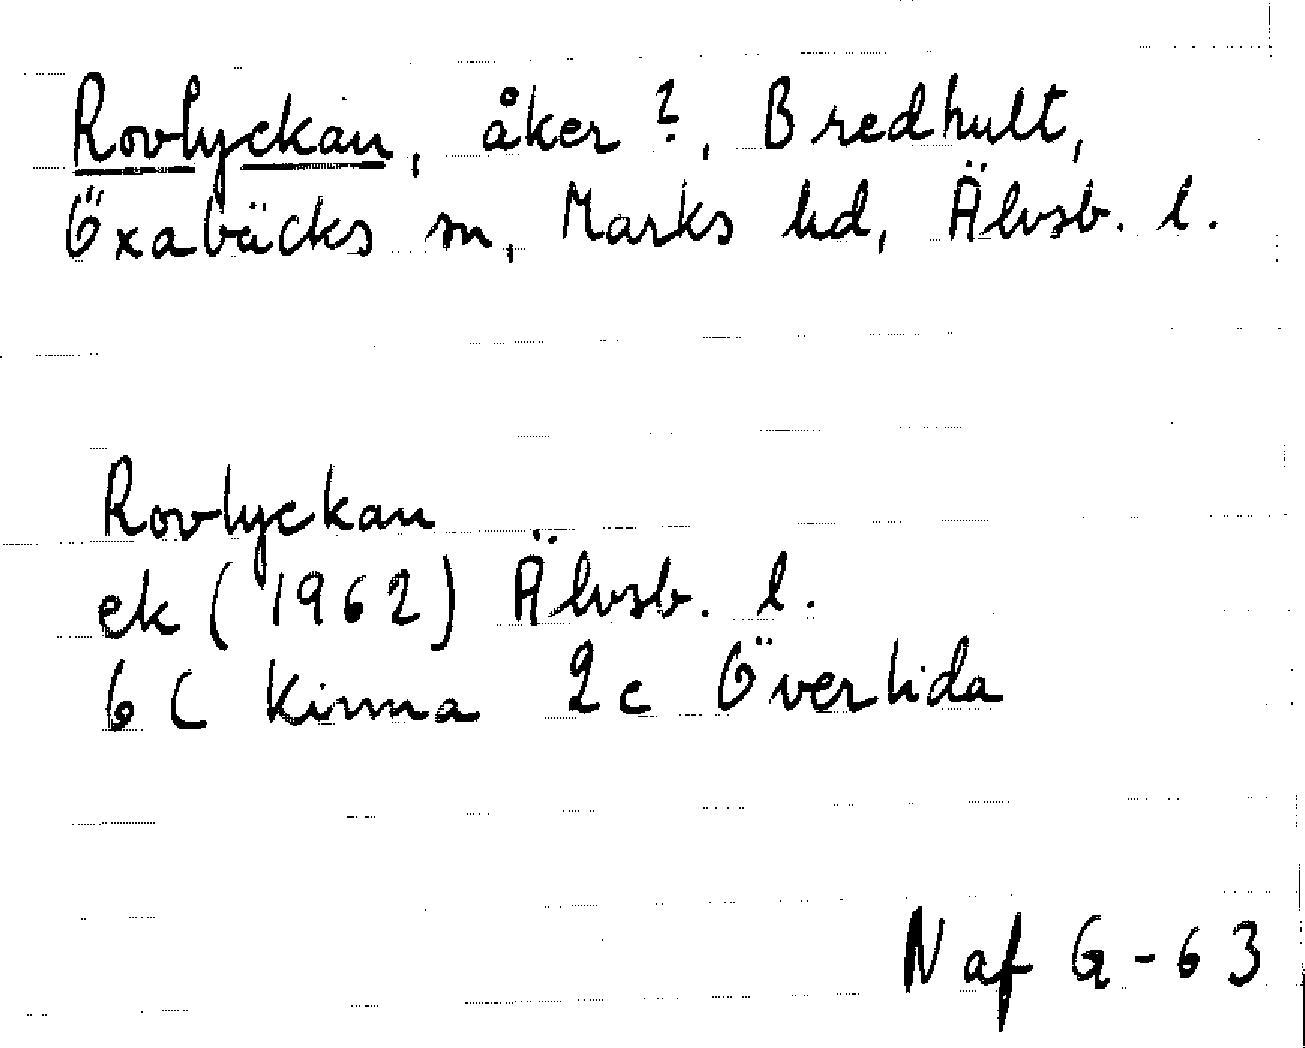 Rovlyckan, åker ?, Bredhult,
Öxabäcks sn, Marks hd, Älvsb. l.
Rovlyckan
ek (1962) Älvsb. l.
6C Kinna 2c Överlida
Naf G-63